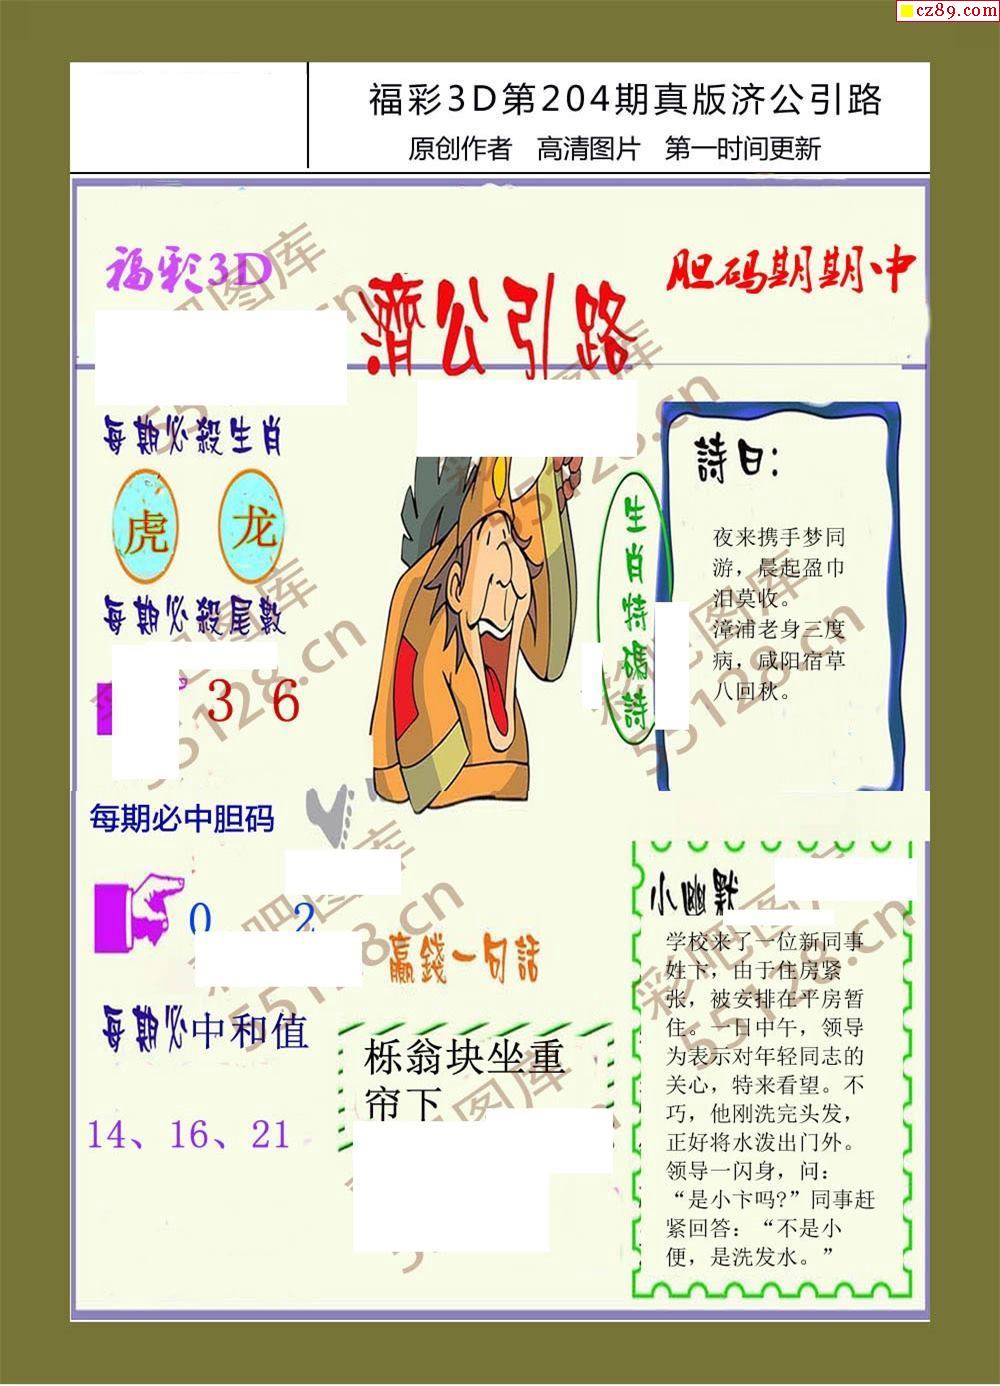 cz89.com
福彩3D第204期真版济公引路
原创作者 高清图片 第一时间更新
福彩3D
濟公引路
胆码期期中
每期必殺生肖
虎 龙
每期必殺尾數
3 6
每期必中胆码
0 2
每期必中和值
14、16、21
生肖特碼詩
詩曰：
夜来携手梦同
游，晨起盈巾
泪莫收。
漳浦老身三度
病，咸阳宿草
八回秋。
贏錢一句話
栎翁块坐重
帘下
小幽默
学校来了一位新同事
姓卞，由于住房紧
张，被安排在平房暂
住。一日中午，领导
为表示对年轻同志的
关心，特来看望。不
巧，他刚洗完头发，
正好将水泼出门外。
领导一闪身，问：
“是小卞吗?”同事赶
紧回答：“不是小
便，是洗发水。”
彩吧图库
55128.cn
彩吧图库
55128.cn
彩吧图库
55128.cn
彩吧图库
55128.cn
彩吧图库
55128.cn